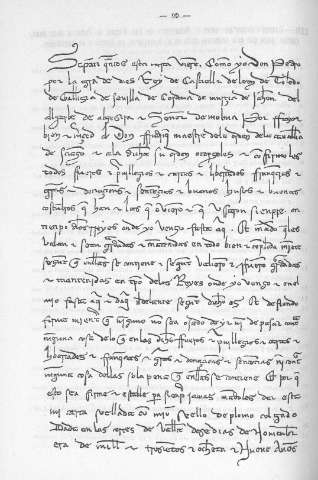 Sepan quantos esta carta vieren Como yo don Pedro
por la gra de dios Rey de Castiella de leon de Toledo
de Gallizia de Sevilla de Cordova de murcia de Jahen del
algarbe de algezira & Sennor de molina Por ffazer
bien & mrced a don ffadriq maestre dela orden dela cavalleria
de Santiago & ala dicha su orden &
todos fueros & privillegios & cartas & libertades & franquezas &
gras & donaciones & sentencias & buenos husos & buenas
costubres q han & las q & q usaron siempre en
tiempo de los Reyes onde yo vengo fasta aq Et mado que les
valan & sean guardadas & mantenidas en todo bien & conplida miete
segunt q en ellas se contiene & segunt valieron & fueron guardadas
& mantenidas en tpo delos Reyes onde yo vengo & en el
mio fasta aq & segunt dicho es Et defiendo
firme miente q ninguno non sea osado de yr ni de pasar contra
ninguna cosa delo q en los dichos fueros & privillegios & cartas &
libertades & franquezas & gras & donacioes & sentencias ni contra
ninguna cosa dellas sola pena q en ellas se contiene Et por q
esto sea firme & estable pa sienp jamas mandeles dar esta
mi carta seellada con mio Seello de plomo colgado
Dada en las cortes de Vallit dias de Novienbre
Era de mill & trezientos & ochenta & Nueve Anos